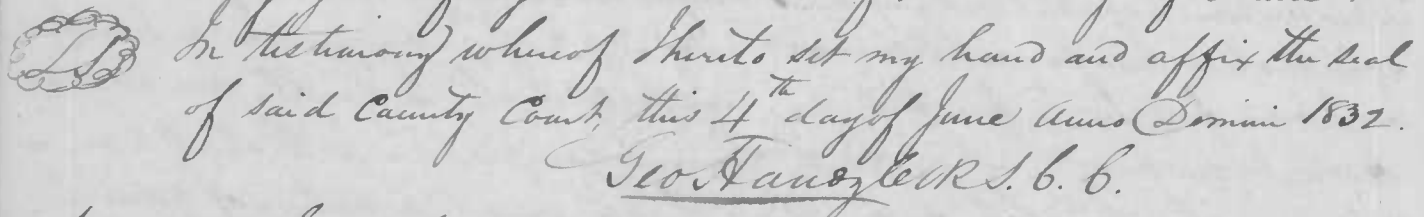 LS In testimony whereof I hereto set my hand and affix the seal
of said County Court, this 4th day of June Anno Domini 1832.
Geo